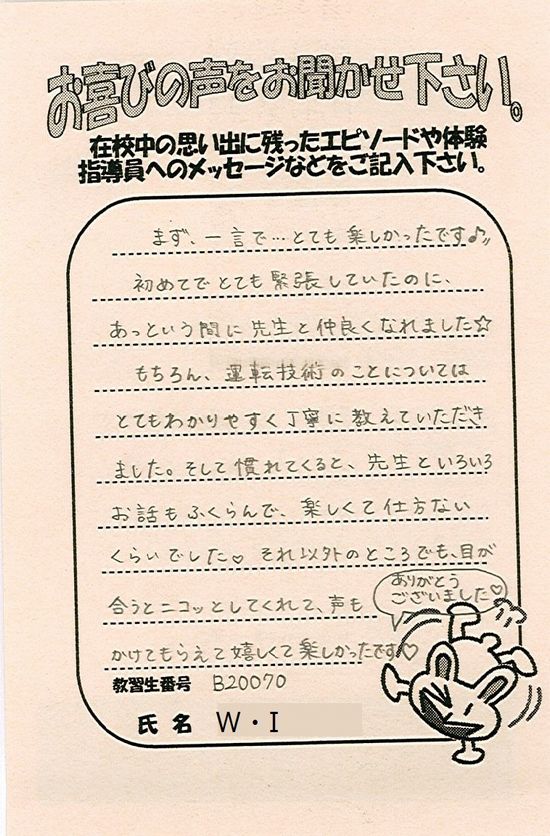 お喜びの声をお聞かせ下さい。
在校中の思い出に残ったエピソードや体験
指導員へのメッセージなどをご記入下さい。
まず、一言で…とても楽しかったです♪〃
初めてでとても緊張していたのに、
あっという間に先生と仲良くなれました☆
もちろん、運転技術のことについては
とてもわかりやすく丁寧に教えていただき
ました。そして慣れてくると、先生といろいろ
お話もふくらんで、楽しくて仕方ない
くらいでした♡ それ以外のところでも、目が
合うとニコッとしてくれて、声も
かけてもらえて嬉しくて楽しかったです♡
ありがとう
ございました♡
教習生番号 B20070
氏名 W・I